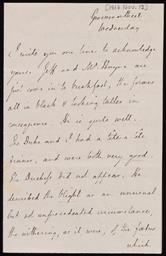 [1864, Nov. 12]
Grosvenor Street.
Wednesday
I write you one line to acknowledge
yours. Jeff and Mr Hayu are
just come in to breakfast; the former
all in black & looking taller in
consequence. He is quite well.
The Duke and I had a tête à tête
dinner, and were both very good
The Duchess did not appear. He
described the blight as an unusual
but not unprecedented circumstance,
the withering, as it were, of the
which